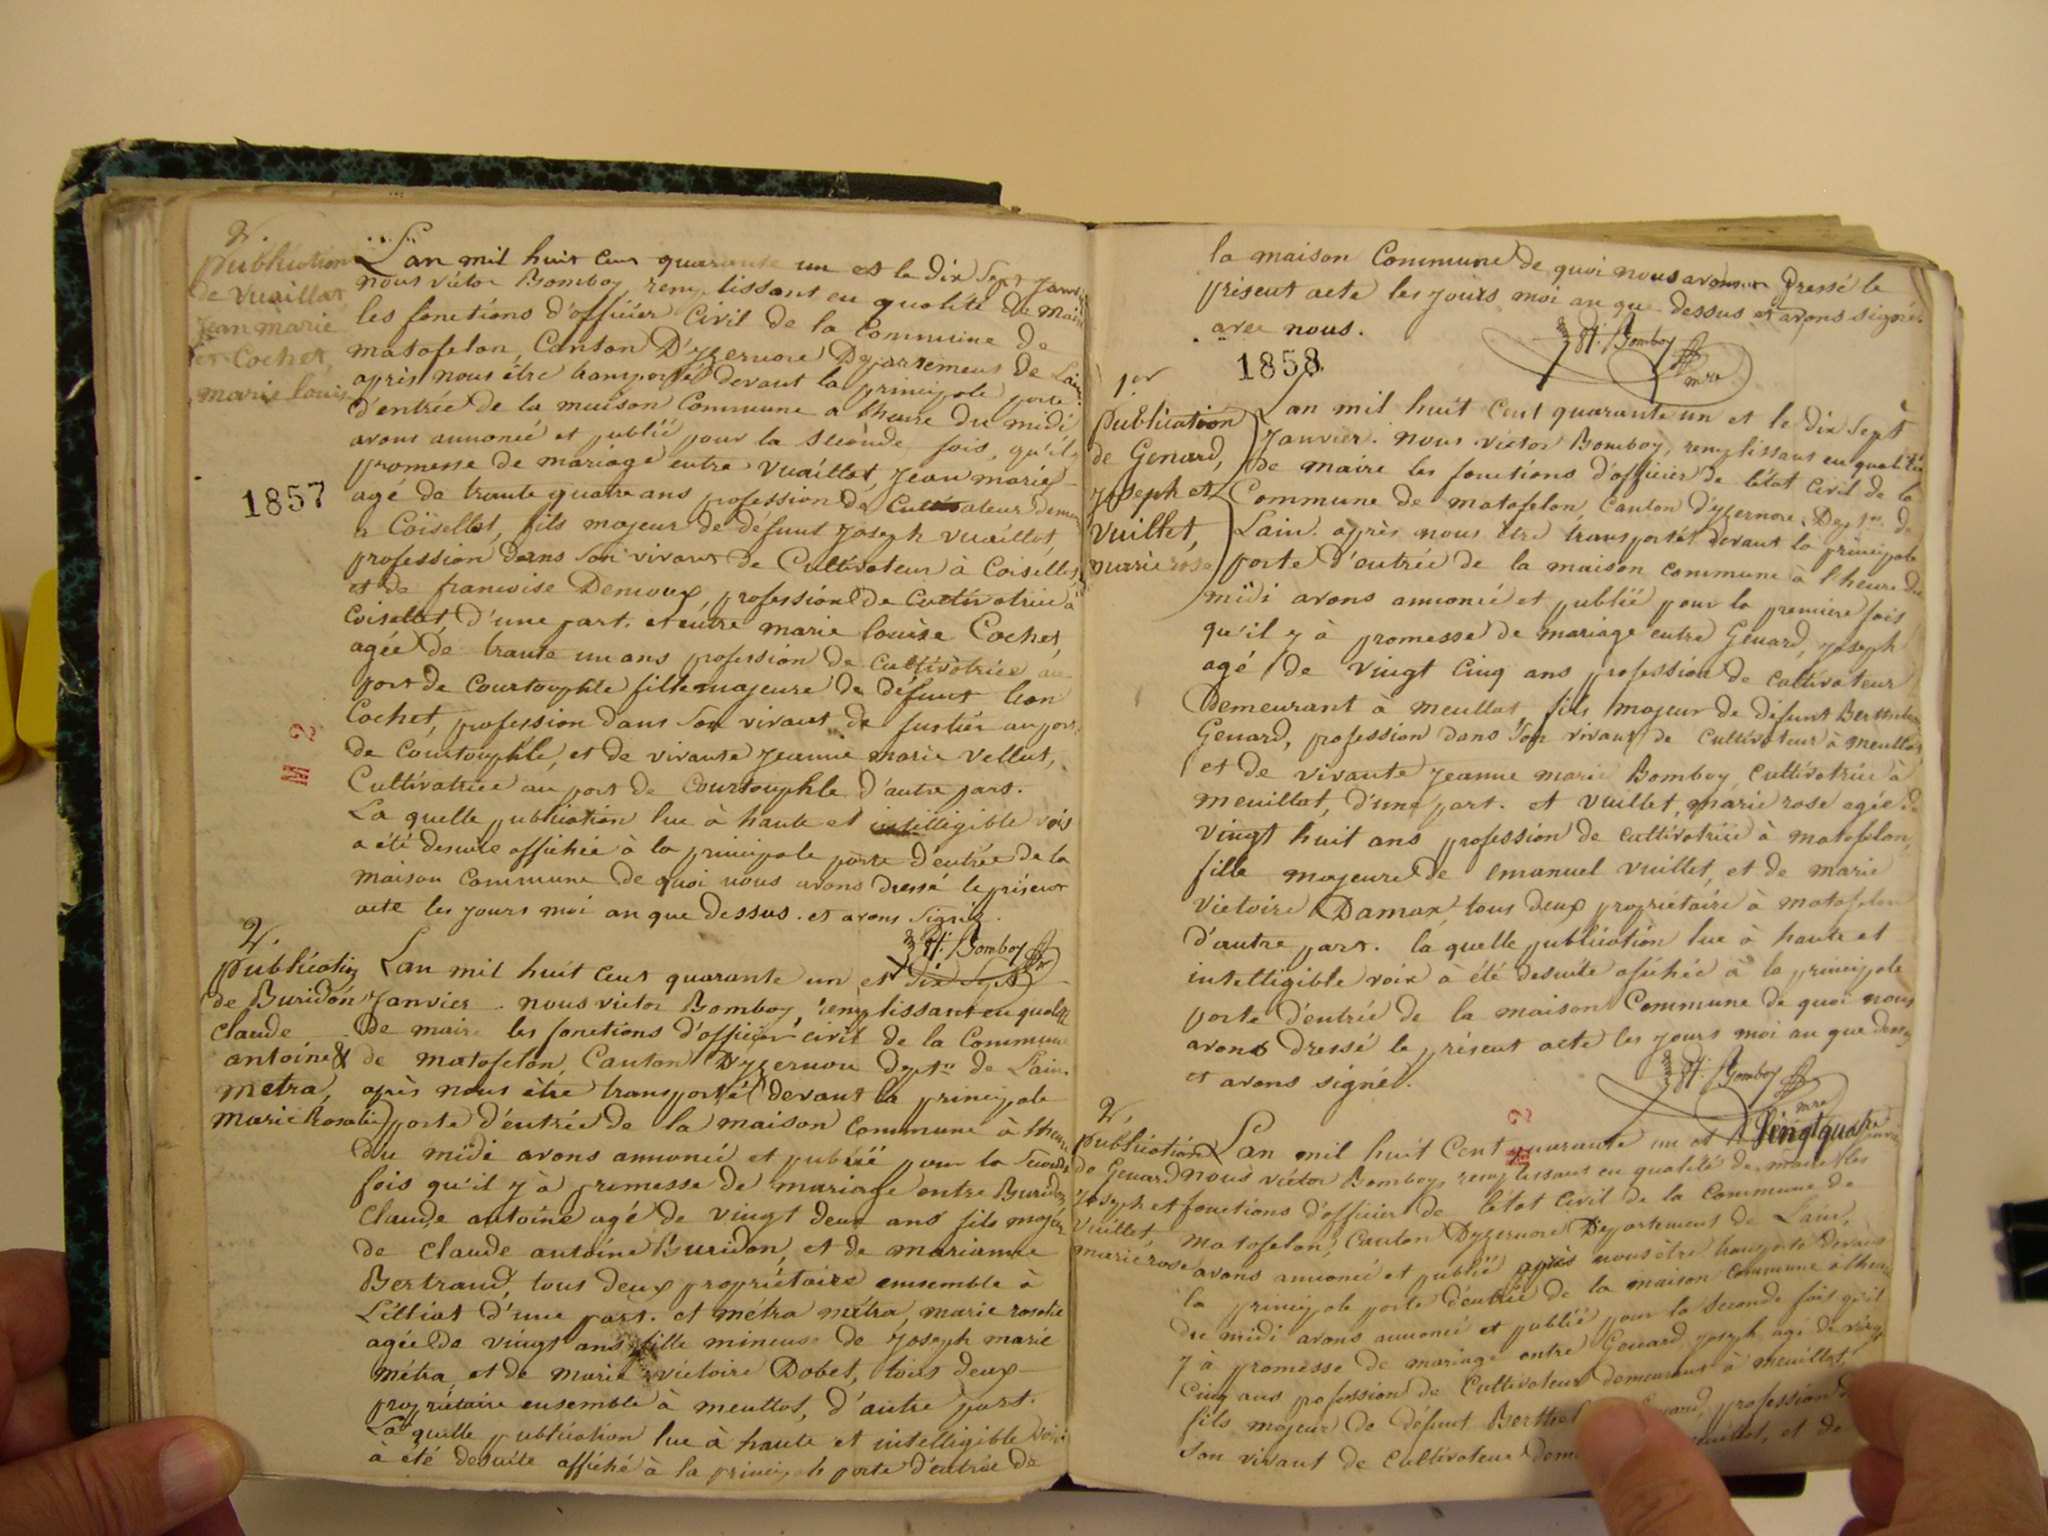 2.
publication
de Vuaillat
Jean marie
et Cochet,
marie louise
L'an mil huit cent quarante un et le dix sept Janvier
nous victor Bomboy remplissant en qualité de maire
les fonctions d'officier civil de la Commune de
matafelon, Canton D'yzernore Département de Lain.
après nous être transporté devant la principale porte
d'entrée de la maison Commune a lheure du midi
avons annoncé et publié pour la seconde fois, qu'il y
promesse de mariage entre Vuaillat, Jean marie
1857
agé de trante quatre ans profession de Cultivateur demeu
a Coisellet, fils majeur de défunt Joseph vuaillat,
profession dans son vivant de Cultivateur à Coisellet
et de francoise Denoux, profession de cultivatrice à
Coisellet, d'une part. et entre marie louise Cochet,
agée de trante un ans profession de cultivatrice au
port de Courtouphle fille majeure de défunt leon
Cochet, profession dans son vivant de fustier au port
de Courtouphle, et de vivante Jeanne marie Vellut,
M 2
Cultivatrice au port de Courtouphle d'autre part.
La quelle publication lue à haute et intelligible vois
a été desuite affichée à la principale porte d'entrée de la
maison commune de quoi nous avons dressé le présent
acte les jours moi an que dessus. et avons signé.
Vt. Bomboy
2.
publication
de Buridon
Claude
antoine &
metra,
Marie Rosalie
L'an mil huit cent quarante un et dix sept
Janvier. nous victor Bomboy, remplissant en qualité
de maire les fonctions d'officier civil de la Commune
de matafelon, Canton Dyzernore Dept. de Lain.
après nous être transporté devant la principale
porte d'entrée de la maison commune à lheure
du midi avons annoncé et publié pour la seconde
fois qu'il y à promesse de mariage entre Buridon
Claude antoine agé de vingt deux ans fils majeur
de Claude antoine Buridon, et de marianne
Bertrand, tous deux propriétaires ensemble à
Lilliat d'une part. et métra métra, marie rosalie
agée de vingt ans fille mineuse de Joseph marie
métra, et de marie victoire Dobet, tous deux
propriétaire ensemble à meullat, d'autre part.
La quelle publication lue à haute et intelligible voix
à été desuite affiché à la principale porte d'entrée de
la maison Commune de quoi nous avons dressé le
présent acte les jours moi an que dessus et avons signé
avec nous.
Vt. Bomboy
mre
1858
1er
publication
de Genard,
Joseph et
Vuillet,
marie rose
L'an mil huit cent quarante un et le dix sept
Janvier. nous victor Bomboy, remplissant en qualité
de maire les fonctions d'officier de l'état civil de la
Commune de matafelon, Canton d'yzernore, Dept. de
Lain. après nous être transporté devant la principale
porte d'entrée de la maison commune à l'heure du
midi avons annoncé et publié pour la première fois
qu'il y à promesse de mariage entre Genard, Joseph
agé de vingt cinq ans profession de cultivateur
Demeurant à meullat fils majeur de défunt
Genard, profession dans son vivant de cultivateur à meullat
et de vivante Jeanne marie Bomboy cultivatrice à
meuillat, d'une part. et vuillet, marie rose agée de
vingt huit ans profession de cultivatrice à matafelon,
fille majeure de emanuel vuillet, et de marie
victoire Damax, tous deux propriétaire à matafelon
d'autre part. la quelle publication lue à haute et
intelligible voix à été desuite afichée à la principale
porte d'entrée de la maison Commune de quoi nous
avons dressé le présent acte les jours moi an que dessus
et avons signé.
Vt. Bomboy
mre
2.
publication
de Genard
Joseph et
Vuillet,
marie rose
M 2
L'an mil huit Cent quarante un et vingt quatre
nous victor Bomboy, remplissant en qualité de maire les
fonctions d'officier de l'état civil de la Commune de
matafelon, Canton Dyzernore Département de Lain,
avons annoncé et publié après nous être transporté devant
la principale porte d'entrée de la maison commune à lheure
du midi avons annoncé et publié pour la seconde fois qu'il
y à promesse de mariage entre Genard, Joseph, agé de vingt
cinq ans pofession de Cultivateur demeurant à meuillat,
fils majeur de défunt profession
son vivant de Cultivateur et de